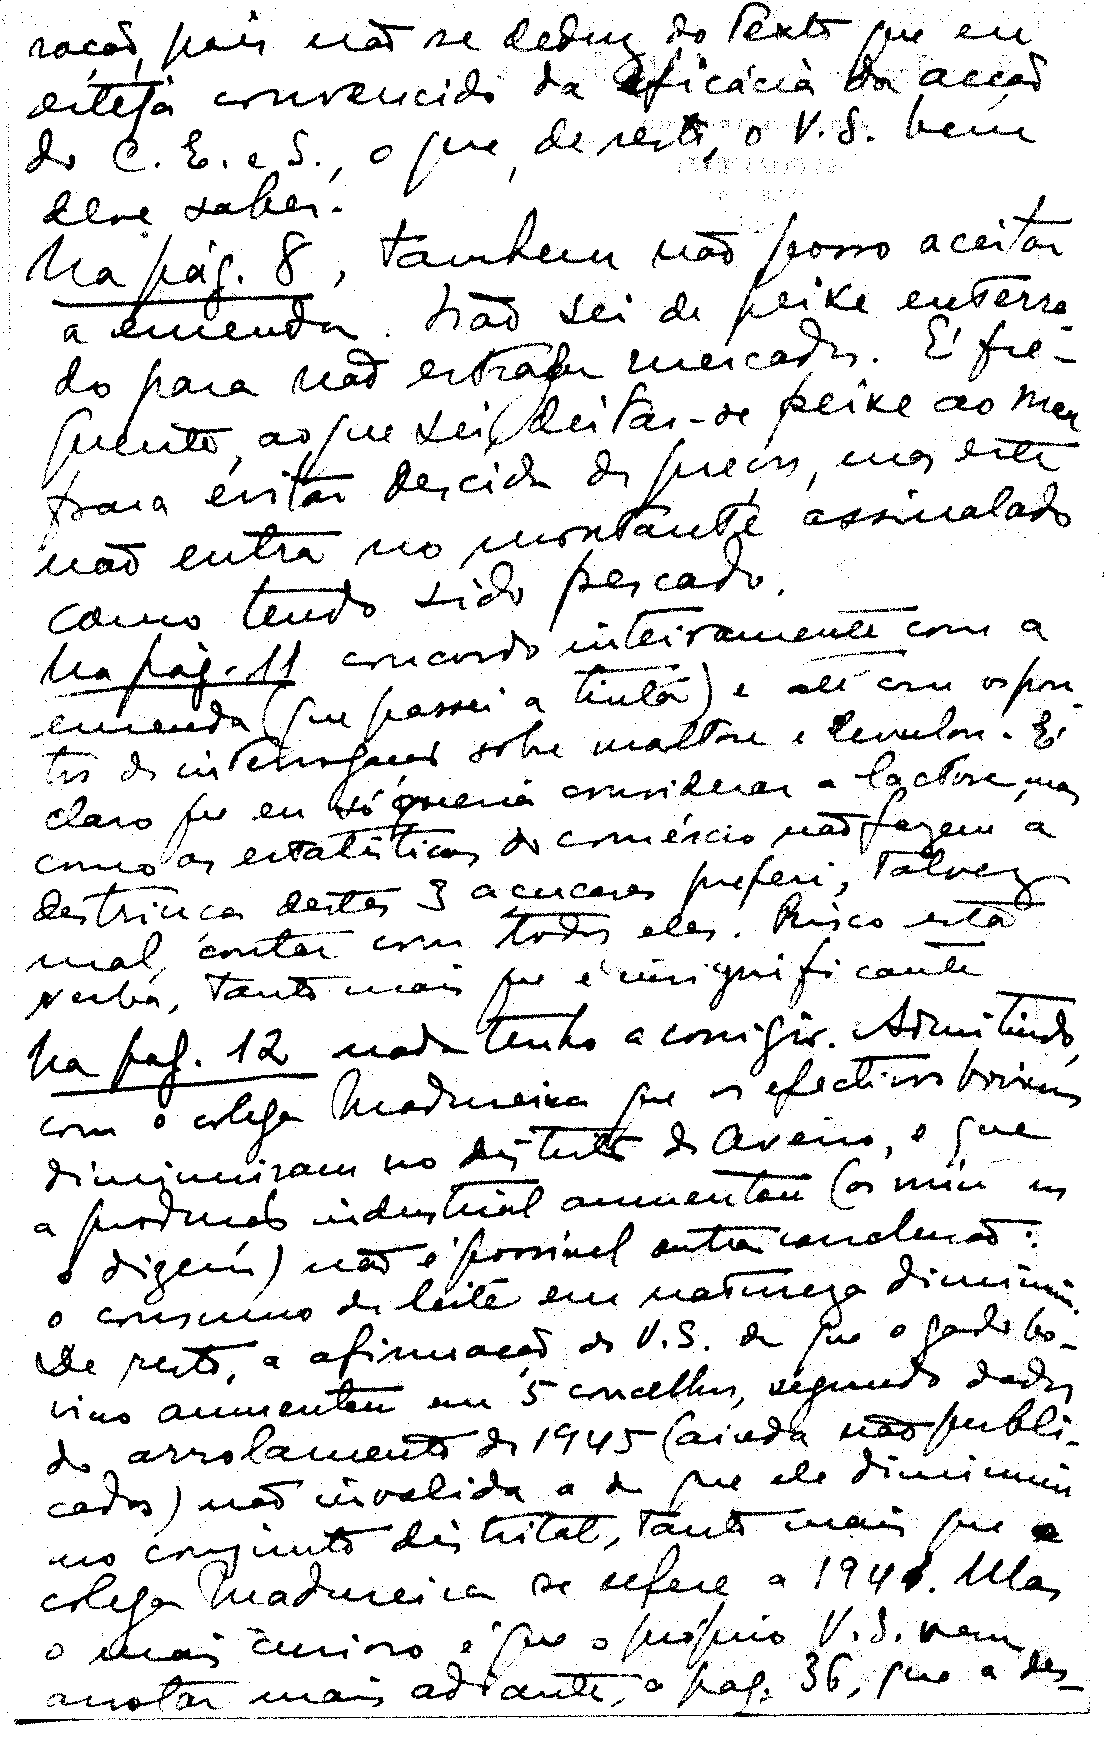 ração, pois não se deduz do texto que eu
esteja convencido da eficácia da acção
do C. E. e S., o que, de resto, o V. S. bem
deve saber.
Na pág. 8, tambem não posso aceitar
a emenda. Não sei de peixe enterra-
do para não estragar mercados. É fre-
quente, ao que sei, deitar-se peixe ao mar
para evitar descida de preços, mas este
não entra no montante assinalado
como tendo sido pescado.
Na pág. 11 concordo inteiramente com a
emenda (que passei a tinta) e até com os pon-
tos de interrogação sobre maltose e levulose. É
claro que eu só queria considerar a lactose, mas
como as estatísticas do comércio não fazem a
destrinça destes 3 açucares preferi, talvez
mal, contar com todos eles. Risco esta
verba, tanto mais que é insignificante
Na pag. 12 nada tenho a corrigir. Admitindo,
com o colega Madureira que os efectivos bovinos
diminuiram no distrito de Aveiro, e que
a produção industrial aumentou (os nos
o dizem) não é possivel outra conclusão:
o consumo de leite em natureza diminuiu.
De resto, a afirmação do V. S. de que o gado bo-
vino aumentou em 5 concelhos, segundo dados
do arrolamento de 1945 (ainda não publi-
cados) não invalida a de que ele diminuiu
no conjunto distrital, tanto mais que o
colega Madureira se refere a 1941. Mas
o mais curioso é que o próprio V. S. vem
anotar mais adiante, a pag. 36, que a des-